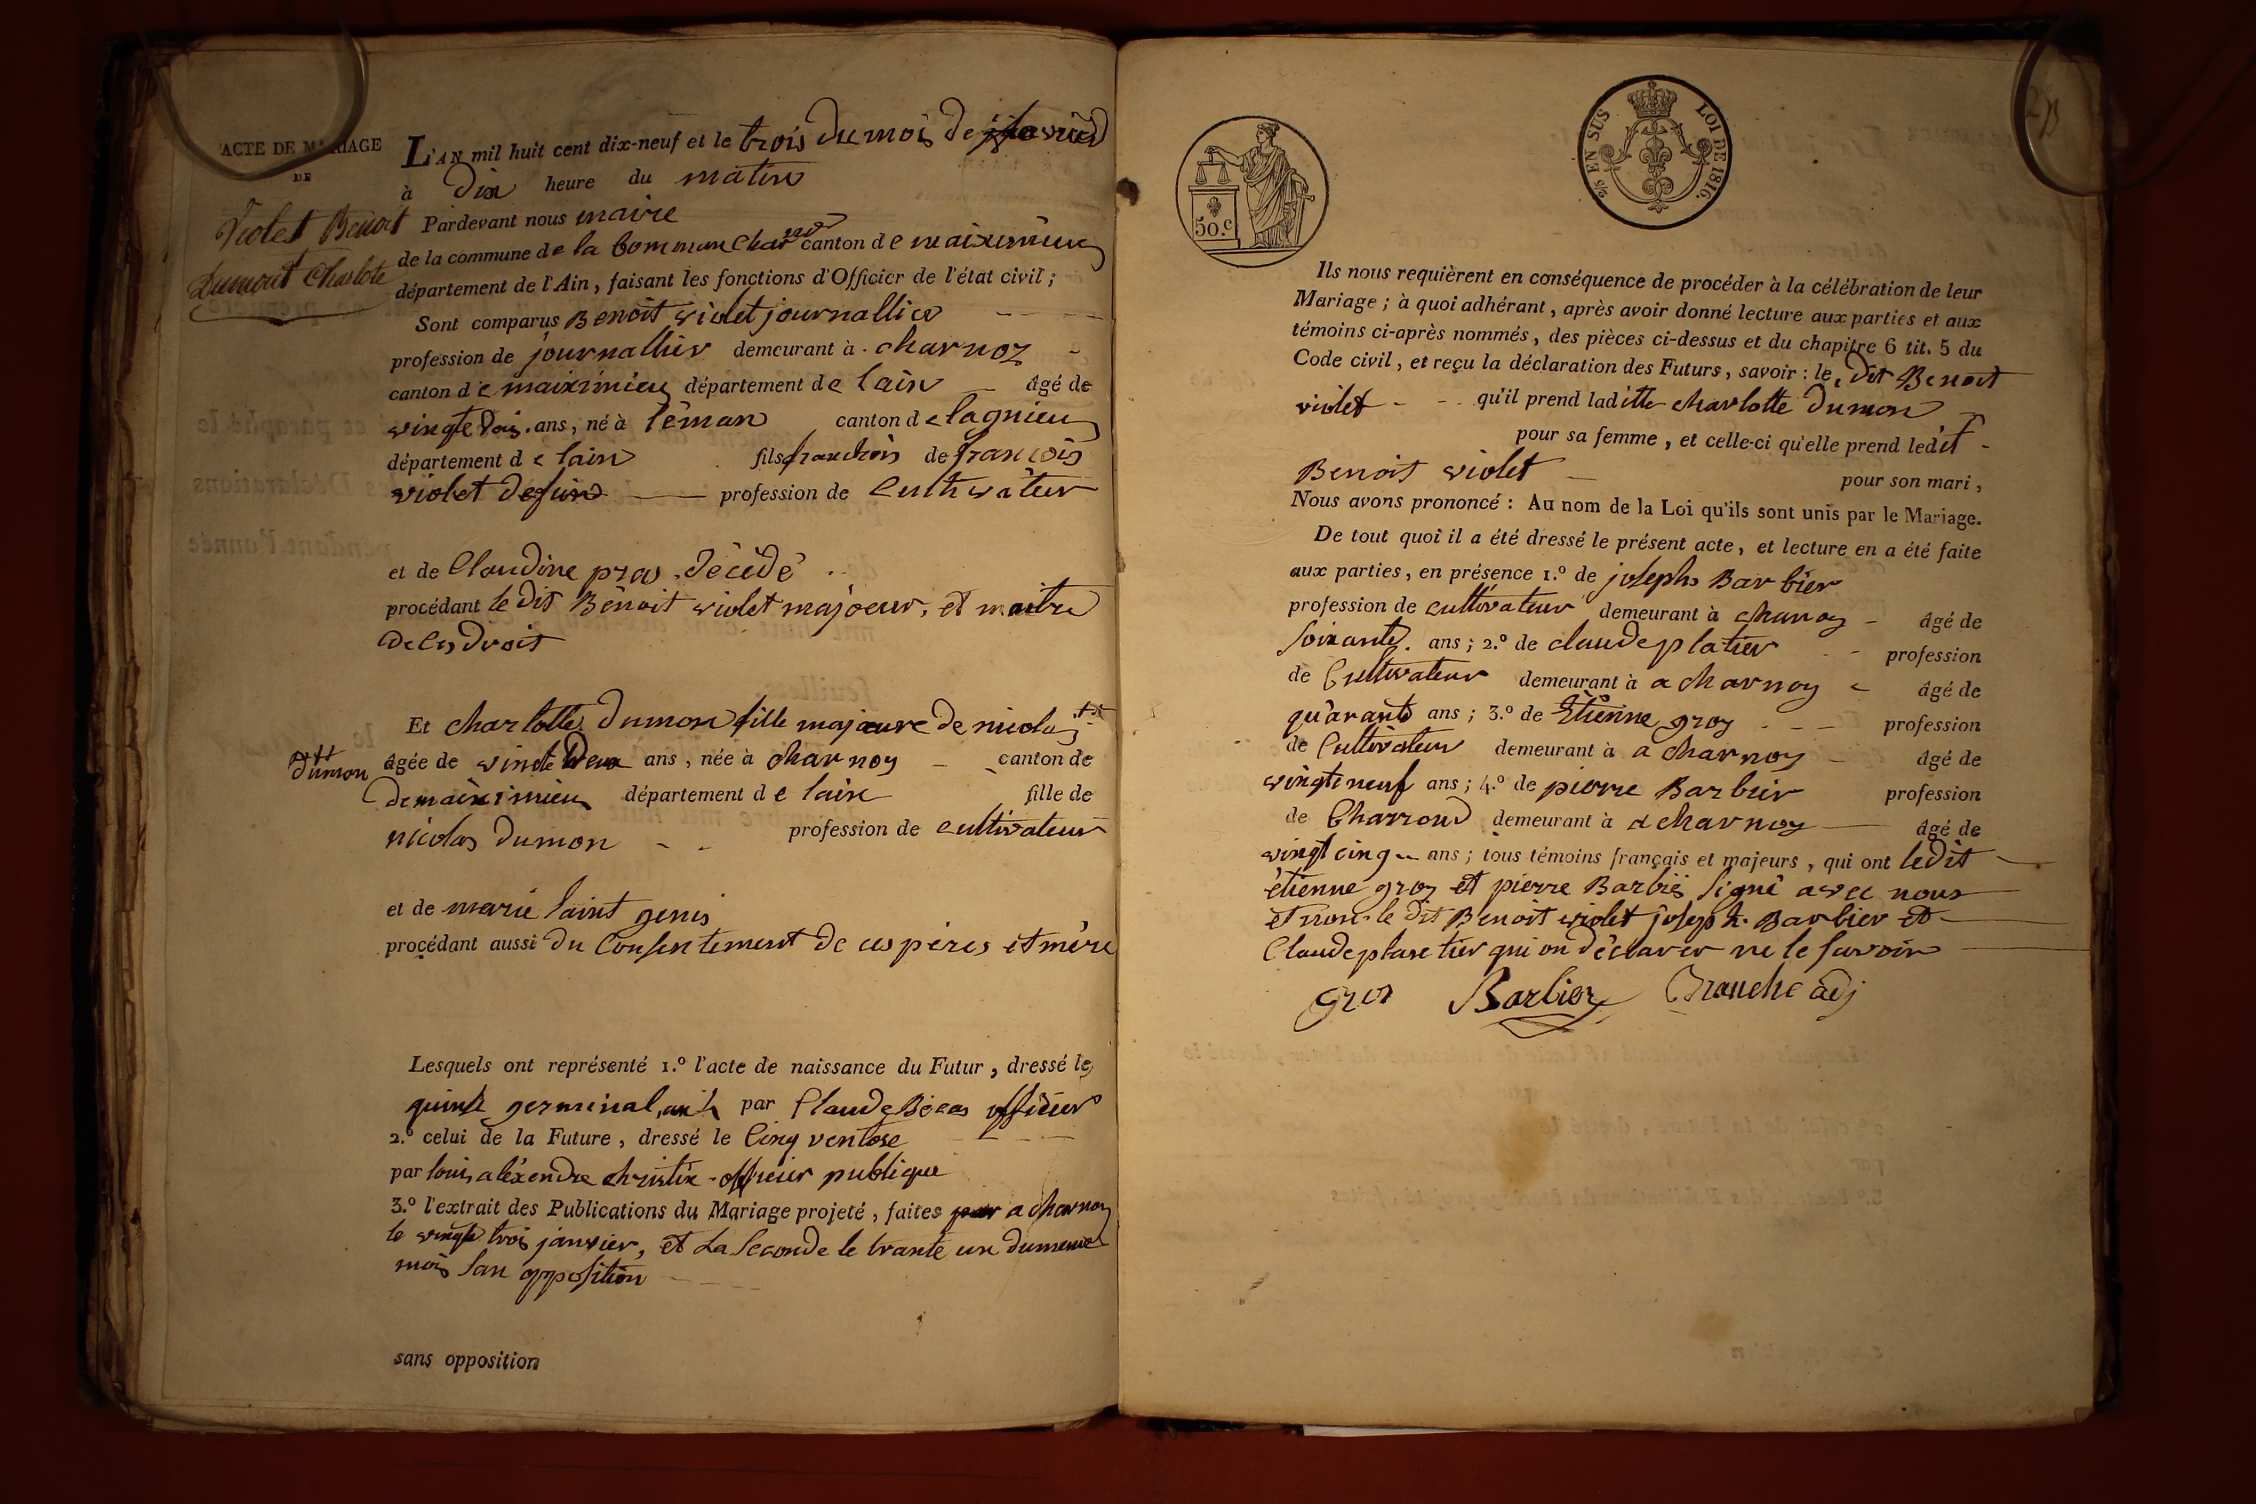 ACTE DE MARIAGE
DE
Violet Benoit
Dumont Charlote
L'AN mil huit cent dix-neuf et le trois du mois de
à dix heure du matin
Pardevant nous maire
de la commune de la Commune Charnoz canton de maiximieux
département de l'Ain, faisant les fonctions d'Officier de l'état civil ;
Sont comparus Benoit violet journallier
profession de journallier demeurant à charnoz
canton de maiximieu département de lain âgé de
vingte ans, né à léman canton de lagnieu
département de lain fils de francois
violet defund profession de Cultivateur
et de Claudine pras décédé
procédant le dit Bénoit violet majoeur, et maitre
de ces droit
Et charlotte dumon fille majeure de nicolas
dumon
âgée de vinte deux ans, née à charnoz canton de
de maiximieu département de lain fille de
nicolas dumon profession de cultivateur
et de marie saint genis
procédant aussi du Consentement de ces péres et mére
Lesquels ont représenté 1.º l'acte de naissance du Futur, dressé le
germinal, an par Claude officier
2.º celui de la Future, dressé le Cinq ventose
par louis aléxendre christin officier publique
3.º l'extrait des Publications du Mariage projeté, faites a charnoz
le vingte trois janvier, et La Seconde le trante un du meme
mois san opposition
sans opposition
50.c
EN SUS LOI DE 1816.
Ils nous requièrent en conséquence de procéder à la célébration de leur
Mariage ; à quoi adhérant, après avoir donné lecture aux parties et aux
témoins ci-après nommés, des pièces ci-dessus et du chapitre 6 tit. 5 du
Code civil, et reçu la déclaration des Futurs, savoir : le dit Benoit
violet qu'il prend laditte charlotte dumon
pour sa femme, et celle-ci qu'elle prend ledit
Benoit violet pour son mari,
Nous avons prononcé : Au nom de la Loi qu'ils sont unis par le Mariage.
De tout quoi il a été dressé le présent acte, et lecture en a été faite
aux parties, en présence 1.º de joseph Barbier
profession de cultivateur demeurant à charnoz âgé de
soixante ans ; 2.º de claude platier profession
de Cultivateur demeurant à a charnoz âgé de
qu'arante ans ; 3.º de Etienne groz profession
de Cultivateur demeurant à a charnoz âgé de
vingteneuf ans ; 4.º de pierre Barbier profession
de Charrond demeurant à a charnoz âgé de
vingt cinq ans ; tous témoins français et majeurs, qui ont ledit
étienne groz et pierre Barbier signé avec nous
et non le dit Benoit violet joseph Barbier et
Claude qui on déclarer ne le savoir
groz Barbier Branche adj